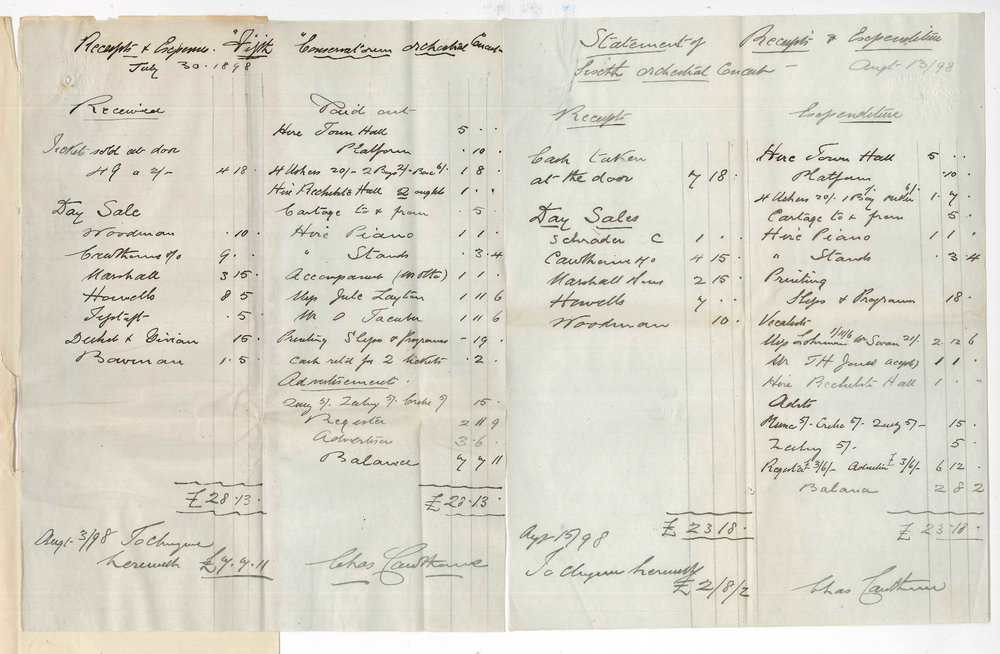 Receipts & Expenses "Fifth "Conservatorium Orchestral Concert
July 30. 1898
Received
Tickets sold at door
49 a 2/- 4 18 ·
Day Sale
Woodman · 10 ·
Cawthorne & Co 9 · ·
Marshall 3 15 ·
Howells 8 5
· 5 ·
& Vivian 15 ·
Bowman 1 · 5 ·
£ 28 · 13 ·
Augt 3/98 To cheque
herewith £7.7.11
Paid out
Hire Town Hall 5 · ·
Platform · 10 ·
4 Ushers 20/- 2 Boys 2/- 6/- 1 8 ·
Hire Hall 2 nights 1 · ·
Cartage to & from · 5 ·
Hire Piano 1 1 ·
" Stands · 3 · 4
Accompanist (Mr Otto) 1 1 ·
Miss Jule Layton 1 11 6
Mr O 1 11 6
Printing Slips & Programs - 19 ·
Cash retd for 2 tickets · 2 ·
Advertisements ·
Quiz 5/- 5/- Critic 5/ 15 ·
Register 2 11 9
Advertiser 3 · 6 ·
Balance 7 7 11
£ 28 · 13 ·
Chas Cawthorne
Statement of Receipts & Expenditure
Sixth Orchestral Concert - Augt 13/98
Receipts
Cash taken
at the door 7 18 ·
Day Sales
Schrader C 1 · ·
Cawthorne & Co 4 15 ·
Marshall 2 15
Howells 7 · ·
Woodman 10 ·
£ 23 18 ·
Augt 15/98
To cheque herewith
£ 2/8/2
Expenditure
Hire Town Hall 5 · ·
Platform · 10 ·
4 Ushers 20/- 1 Boy 1/- 6/- 1 · 7 ·
Cartage to & from 5 ·
Hire Piano 1 1 ·
" Stands · 3 4
Printing
Slips & Programs 18 ·
Vocalists
Miss 1/11/6 Mr 21/- 2 · 12 6
Mr T H Jones accpt) 1 1 ·
Hire Hall 1 · "
Advts
Music 5/- Critic 5/- Quiz 5/- 15 ·
5/- 5 ·
Register £3/6/- Advertiser £3/6/- 6 12 ·
Balance 2 8 2
£ 23 - 18 ·
Chas Cawthorne